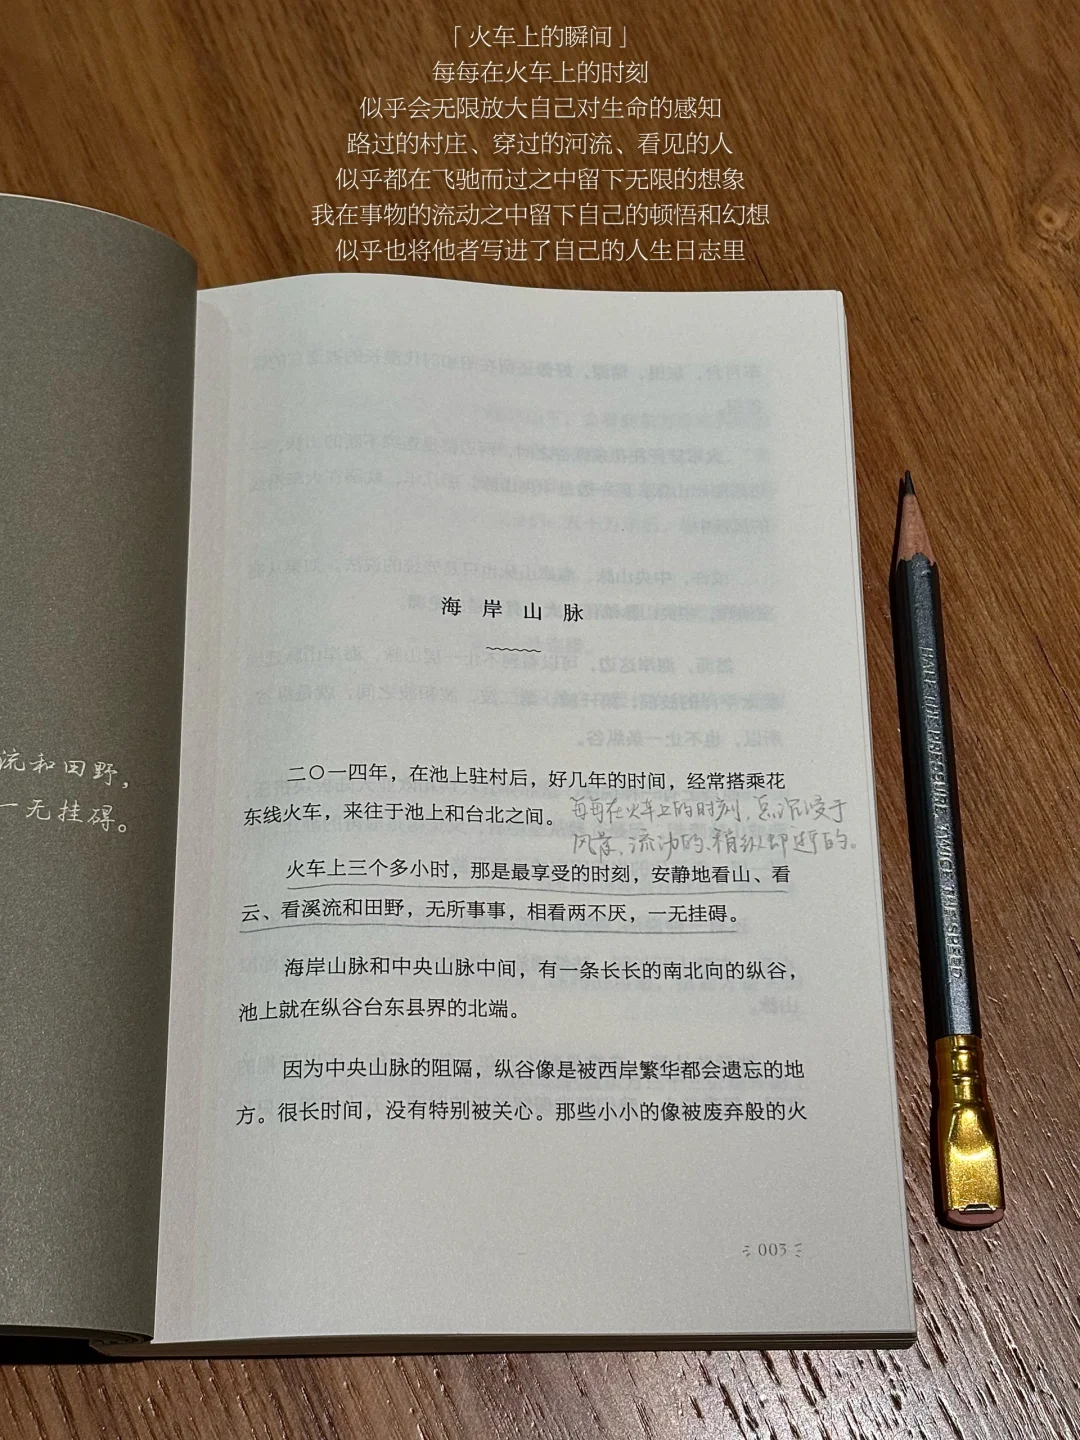 「火车上的瞬间」
每每在火车上的时刻
似乎会无限放大自己对生命的感知
路过的村庄、穿过的河流、看见的人
似乎都在飞驰而过之中留下无限的想象
我在事物的流动之中留下自己的顿悟和幻想
似乎也将他者写进了自己的人生日志里
流和田野，
一无挂碍。
海岸山脉
二〇一四年，在池上驻村后，好几年的时间，经常搭乘花
东线火车，来往于池上和台北之间。
每每在火车上的时刻，总沉浸于
风景，流动的、稍纵即逝的。
火车上三个多小时，那是最享受的时刻，安静地看山、看
云、看溪流和田野，无所事事，相看两不厌，一无挂碍。
海岸山脉和中央山脉中间，有一条长长的南北向的纵谷，
池上就在纵谷台东县界的北端。
因为中央山脉的阻隔，纵谷像是被西岸繁华都会遗忘的地
方。很长时间，没有特别被关心。那些小小的像被废弃般的火
003
HALF THE PRESSURE, TWICE THE SPEED